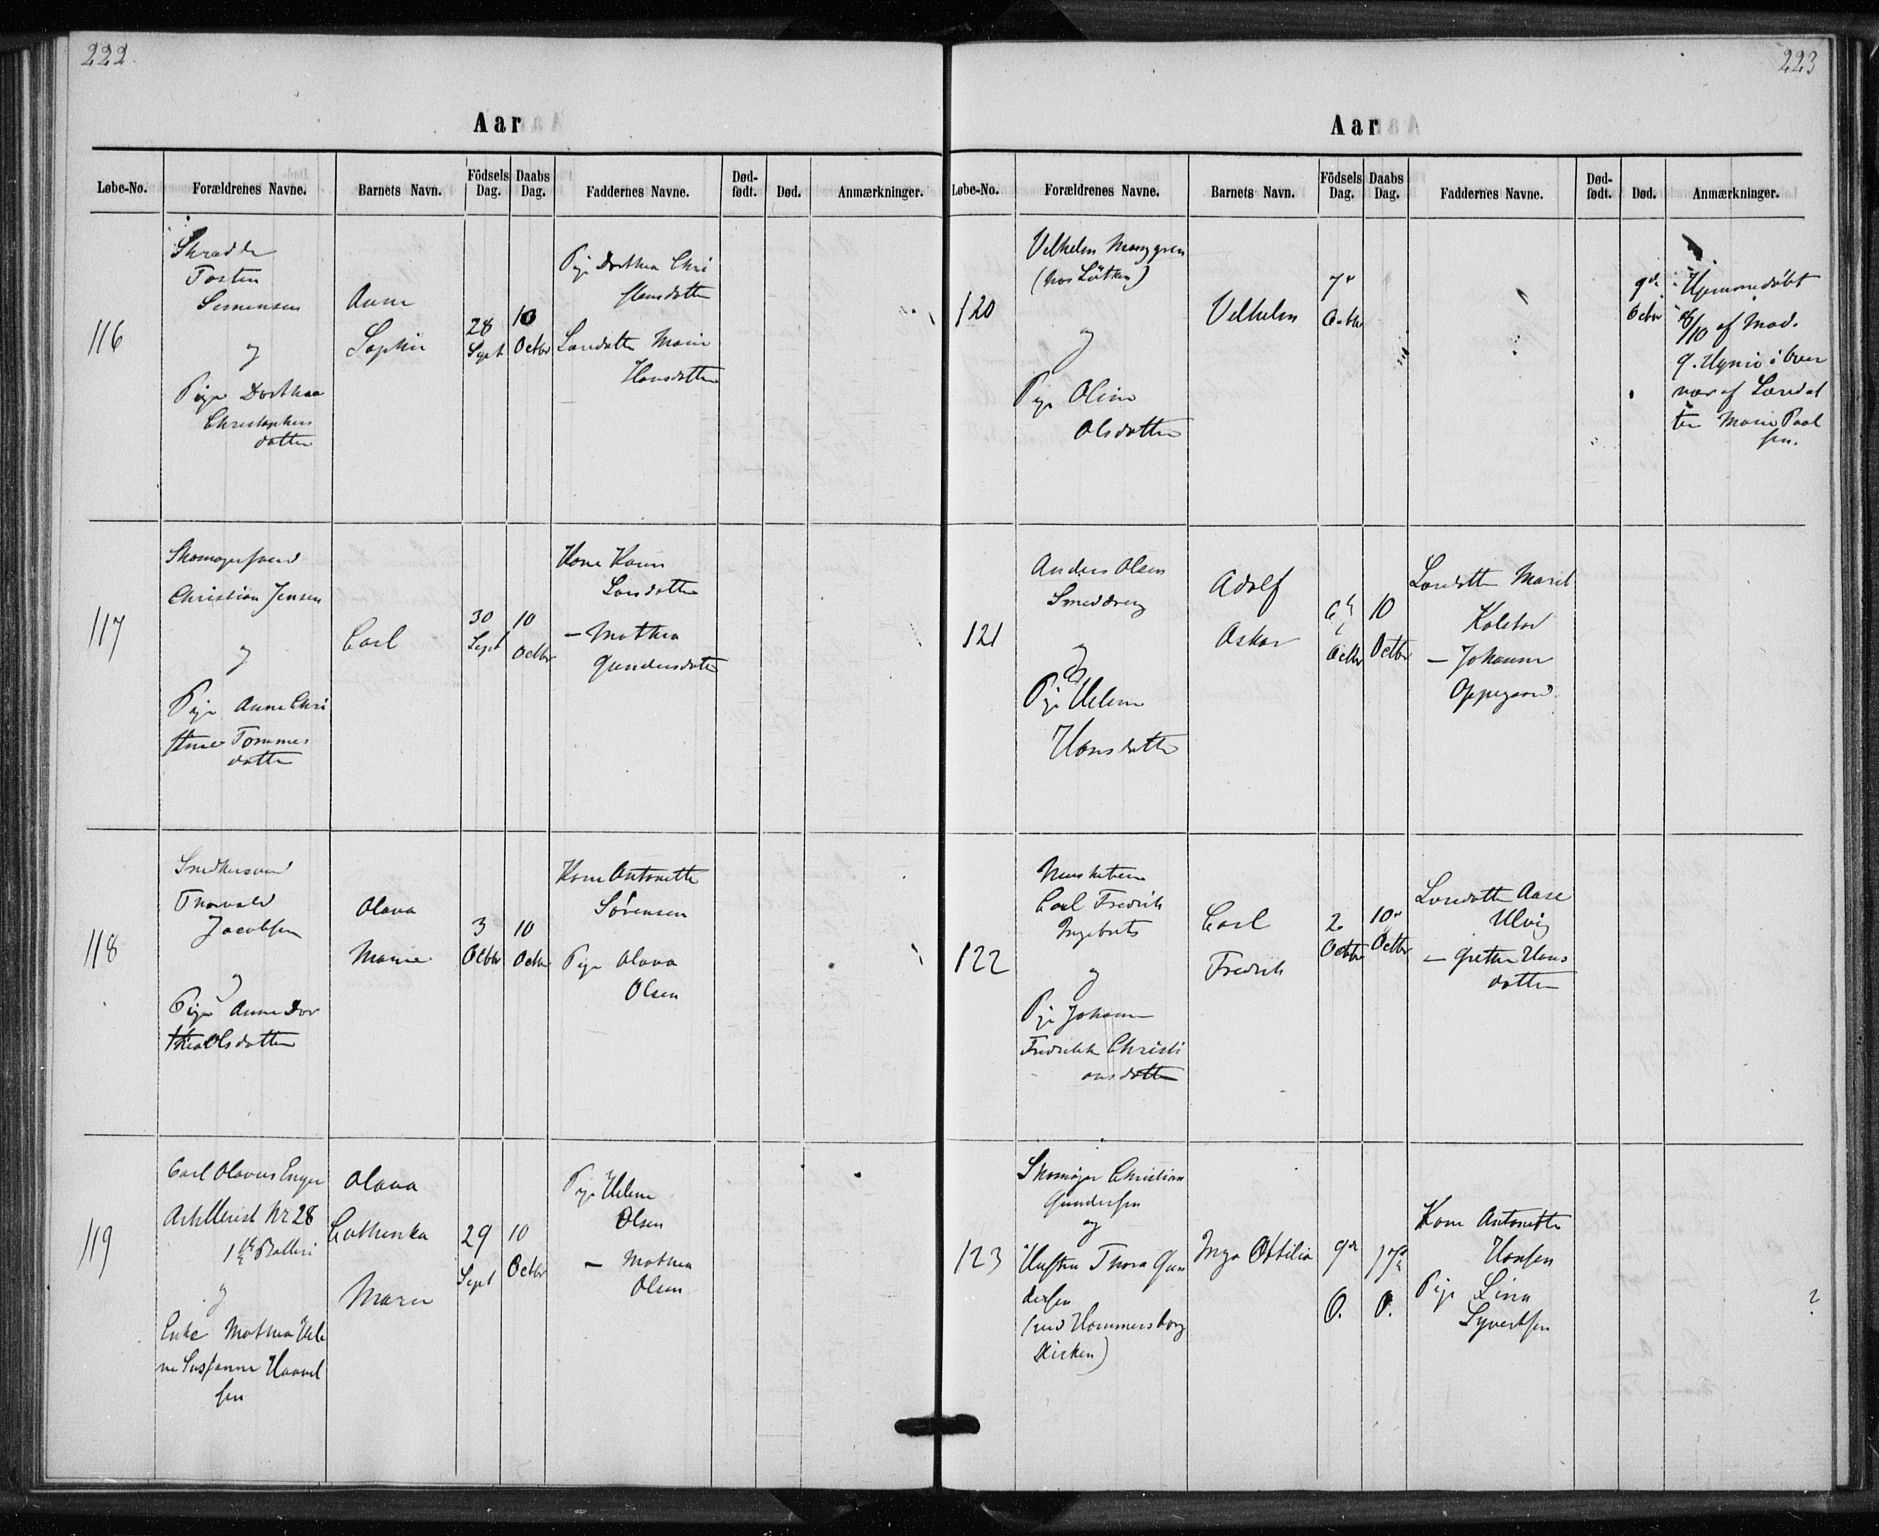 222
Aar
Løbe-No. Forældrenes Navne. Barnets Navn. Födsels Dag. Daabs Dag. Faddernes Navne. Død-født. Død. Anmærkninger.
116
Tosten
Simensen
og
Pige Dorthea
Christophers
datter
Anne
Sophie
28
Sept
10
Octbr
Pige Dorthea Chri
stensdatter
Marie
Hansdatter
117
Skomagersvend
Christian Jensen
og
Pige Anne Chri
stine Tommes
datter
Carl
30
Sept
10
Octbr
Kone Karen
Larsdatter
— Mathea
Gundersdatter
118
Snedkersvend
Thorvald
Jacobsen
og
Pige Anne Dor
thea Olsdatter
Olava
Marie
3
Octbr
10
Octbr
Kone Antonette
Sørensen
Pige Olava
Olsen
119
Carl Olavus Enger
Artillerist Nr 28
Batteri
og
Enke Mathea Hele
ne Susanne Haavel
sen
Olava
Cathinka
Maren
29
Sept
10
Octbr
Pige Helene
Olsen
— Mathea
Olsen
223
Aar
Løbe-No. Forældrenes Navne. Barnets Navn. Födsels Dag. Daabs Dag. Faddernes Navne. Død-født. Død. Anmærkninger.
120
Vilhelm
(hos Lütken)
og
Pige Oline
Olsdatter
Vilhelm
7de
Octbr
9de
Octbr
Hjemmedøbt
8/10 af Mad.
vær af
Marie Paul
sen.
121
Anders Olsen
Smeddreng
og
Pige Helene
Hansdatter
Adolf
Oskar
6te
Octbr
10
Octbr
Marit
Kolstad
— Johanne
Oppegaard
122
Carl Fredrik
Ingebrets
og
Pige Johanne
Fredrikke Christi
ansdatter
Carl
Fredrik
2
Octbr
10de
Octbr
Aase
Ulvig
— Grethe Hans
datter
123
Skomager Christian
Gundersen
og
Hustru Thora Gun
dersen
(ved Hammersborg
Kirken)
Inga Ottilia
9de
O.
17de
O.
Kone Antonette
Hansen
Pige Lina
Syvertsen
?